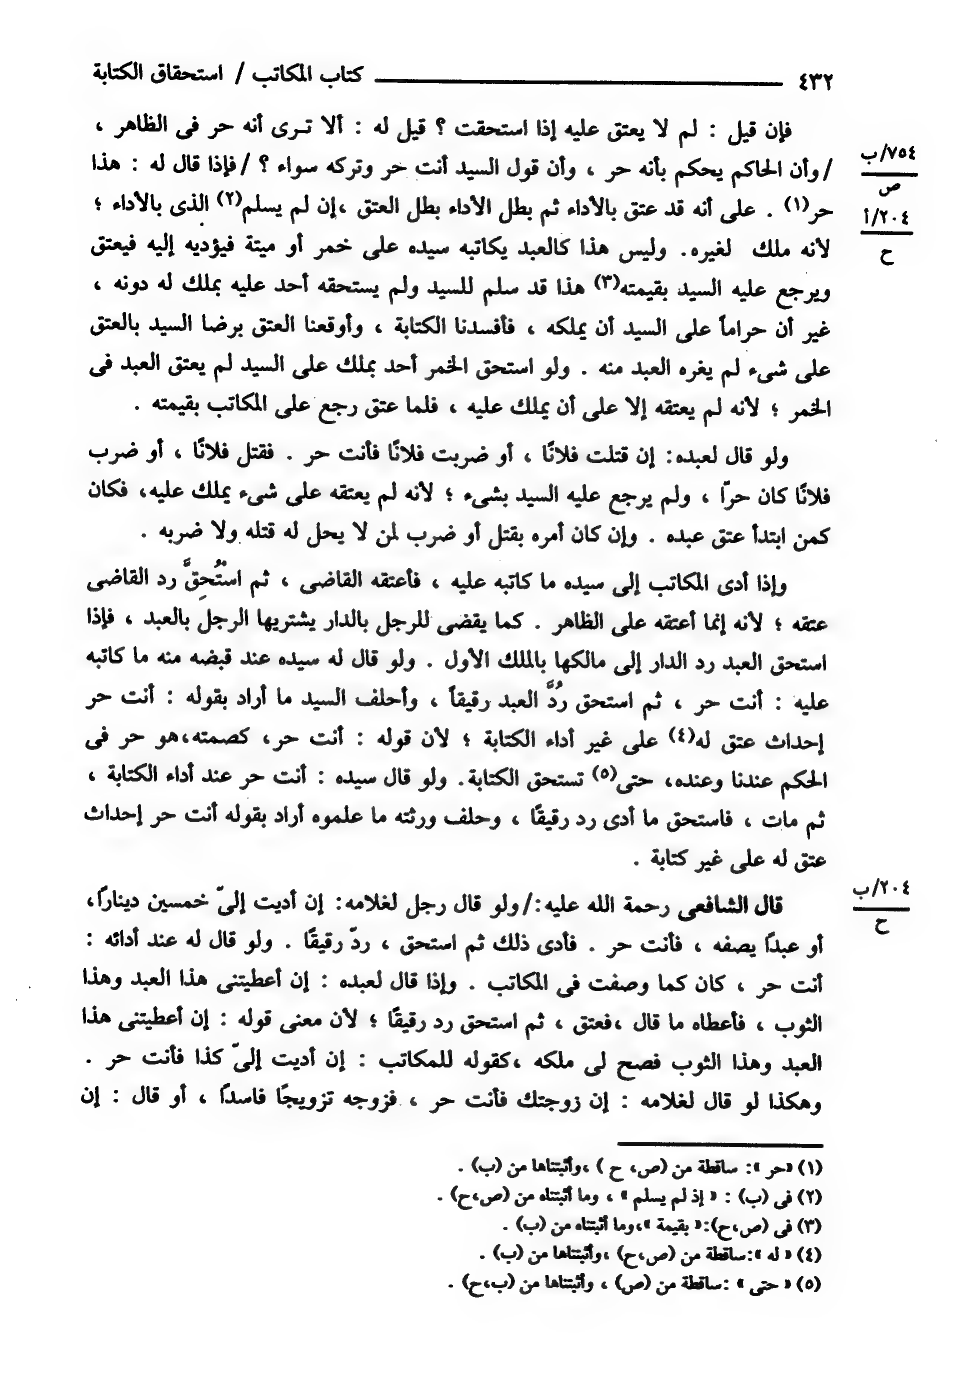 ٤٣٢ كتاب المكاتب / استحقاق الكتابة
فإن قيل : لم لا يعتق عليه إذا استحقت ؟ قيل له : ألا تـرى أنه حر فى الظاهر ،
٧٥٤/ب
ص
/ وأن الحاكم يحكم بأنه حر ، وأن قول السيد أنت حر وتركه سواء ؟ / فإذا قال له : هذا
٢٠٤/أ
ح
حر(١) . على أنه قد عتق بالأداء ثم بطل الأداء بطل العتق ،إن لم يسلم(٢) الذى بالأداء ؛
لأنه ملك لغيره. وليس هذا كالعبد يكاتبه سيده على خمر أو ميتة فيؤديه إليه فيعتق
ويرجع عليه السيد بقيمته(٣) هذا قد سلم للسيد ولم يستحقه أحد عليه بملك له دونه ،
غير أن حراماً على السيد أن يملكه ، فأفسدنا الكتابة ، وأوقعنا العتق برضا السيد بالعتق
على شىء لم يغره العبد منه . ولو استحق الخمر أحد بملك على السيد لم يعتق العبد فى
الخمر ؛ لأنه لم يعتقه إلا على أن يملك عليه ، فلما عتق رجع على المكاتب بقيمته .
ولو قال لعبده: إن قتلت فلانًا ، أو ضربت فلانًا فأنت حر . فقتل فلانًا ، أو ضرب
فلانًا كان حرّا ، ولم يرجع عليه السيد بشىء ؛ لأنه لم يعتقه على شىء يملك عليه، فكان
كمن ابتدأ عتق عبده . وإن كان أمره بقتل أو ضرب لمن لا يحل له قتله ولا ضربه .
وإذا أدى المكاتب إلى سيده ما كاتبه عليه ، فأعتقه القاضى ، ثم استُحِقَّ رد القاضى
عتقه ؛ لأنه إنما أعتقه على الظاهر . كما يقضى للرجل بالدار يشتريها الرجل بالعبد ، فإذا
استحق العبد رد الدار إلى مالكها بالملك الأول . ولو قال له سيده عند قبضه منه ما كاتبه
عليه : أنت حر ، ثم استحق رُدَّ العبد رقيقاً ، وأحلف السيد ما أراد بقوله : أنت حر
إحداث عتق له(٤) على غير أداء الكتابة ؛ لأن قوله : أنت حر، كصمته،هو حر فى
الحكم عندنا وعنده، حتى(٥) تستحق الكتابة. ولو قال سيده : أنت حر عند أداء الكتابة ،
ثم مات ، فاستحق ما أدى رد رقيقًا ، وحلف ورثته ما علموه أراد بقوله أنت حر إحداث
عتق له على غير كتابة .
٢٠٤/ب
ح
قال الشافعى رحمة الله عليه:/ ولو قال رجل لغلامه: إن أديت إلىّ خمسين ديناراً،
أو عبدًا يصفه ، فأنت حر . فأدى ذلك ثم استحق ، ردّ رقيقًا . ولو قال له عند أدائه :
أنت حر ، كان كما وصفت فى المكاتب . وإذا قال لعبده : إن أعطيتنى هذا العبد وهذا
الثوب ، فأعطاه ما قال ،فعتق ، ثم استحق رد رقيقًا ؛ لأن معنى قوله : إن أعطيتنى هذا
العبد وهذا الثوب فصح لى ملكه ،كقوله للمكاتب : إن أديت إلىّ كذا فأنت حر .
وهكذا لو قال لغلامه : إن زوجتك فأنت حر ، فزوجه تزويجًا فاسدًا ، أو قال : إن
(١) «حر »: ساقطة من (ص، ح ) ،وأثبتناها من (ب) .
(٢) فى (ب) : « إذ لم يسلم » ، وما أثبتناه من (ص،ح) .
(٣) فى (ص،ح):« بقيمة »،وما أثبتناه من (ب) .
(٤) « له »:ساقطة من (ص،ح) ،وأثبتناها من (ب) .
(٥) « حتى » :ساقطة من (ص) ، وأثبتناها من (ب،ح) .